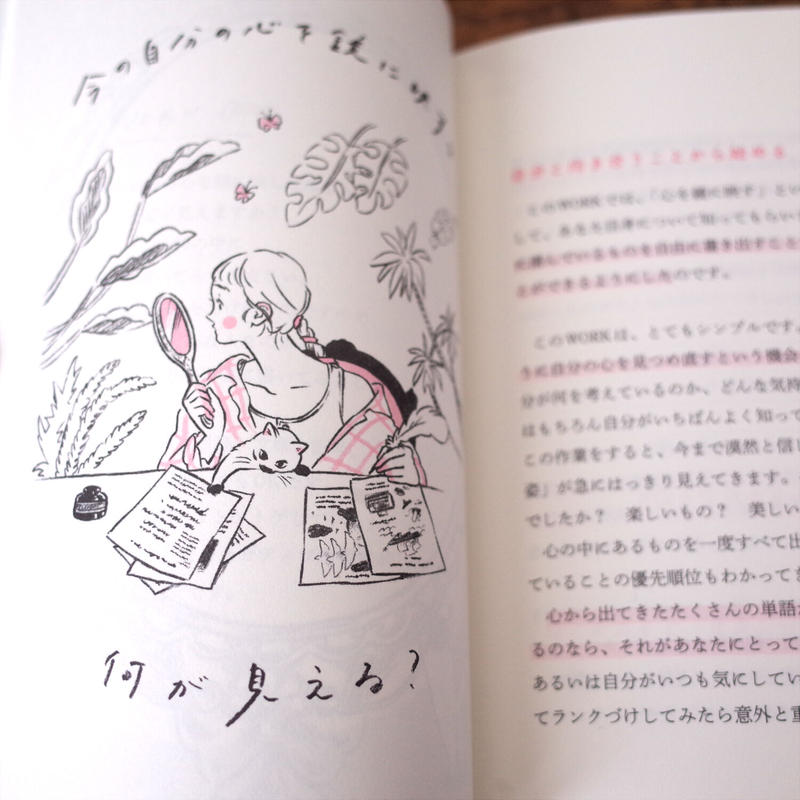 今の自分の心を鏡に映す。
何が見える？
自分と向き合うことから始める
このWORKでは、「心を鏡に映す」とい
して、あなた自身について知ってもらい
に映しているものを自由に書き出すこと
とができるようにしたのです。
このWORKは、とてもシンプルです。
うに自分の心を見つめ直すという機会
分が何を考えているのか、どんな気持
はもちろん自分がいちばんよく知って
この作業をすると、今まで漠然と信じ
姿」が急にはっきり見えてきます。
でしたか？　楽しいもの？　美しい
心の中にあるものを一度すべて出
ていることの優先順位もわかってき
心から出てきたたくさんの単語
るのなら、それがあなたにとって
あるいは自分がいつも気にしてい
てランクづけしてみたら意外と重